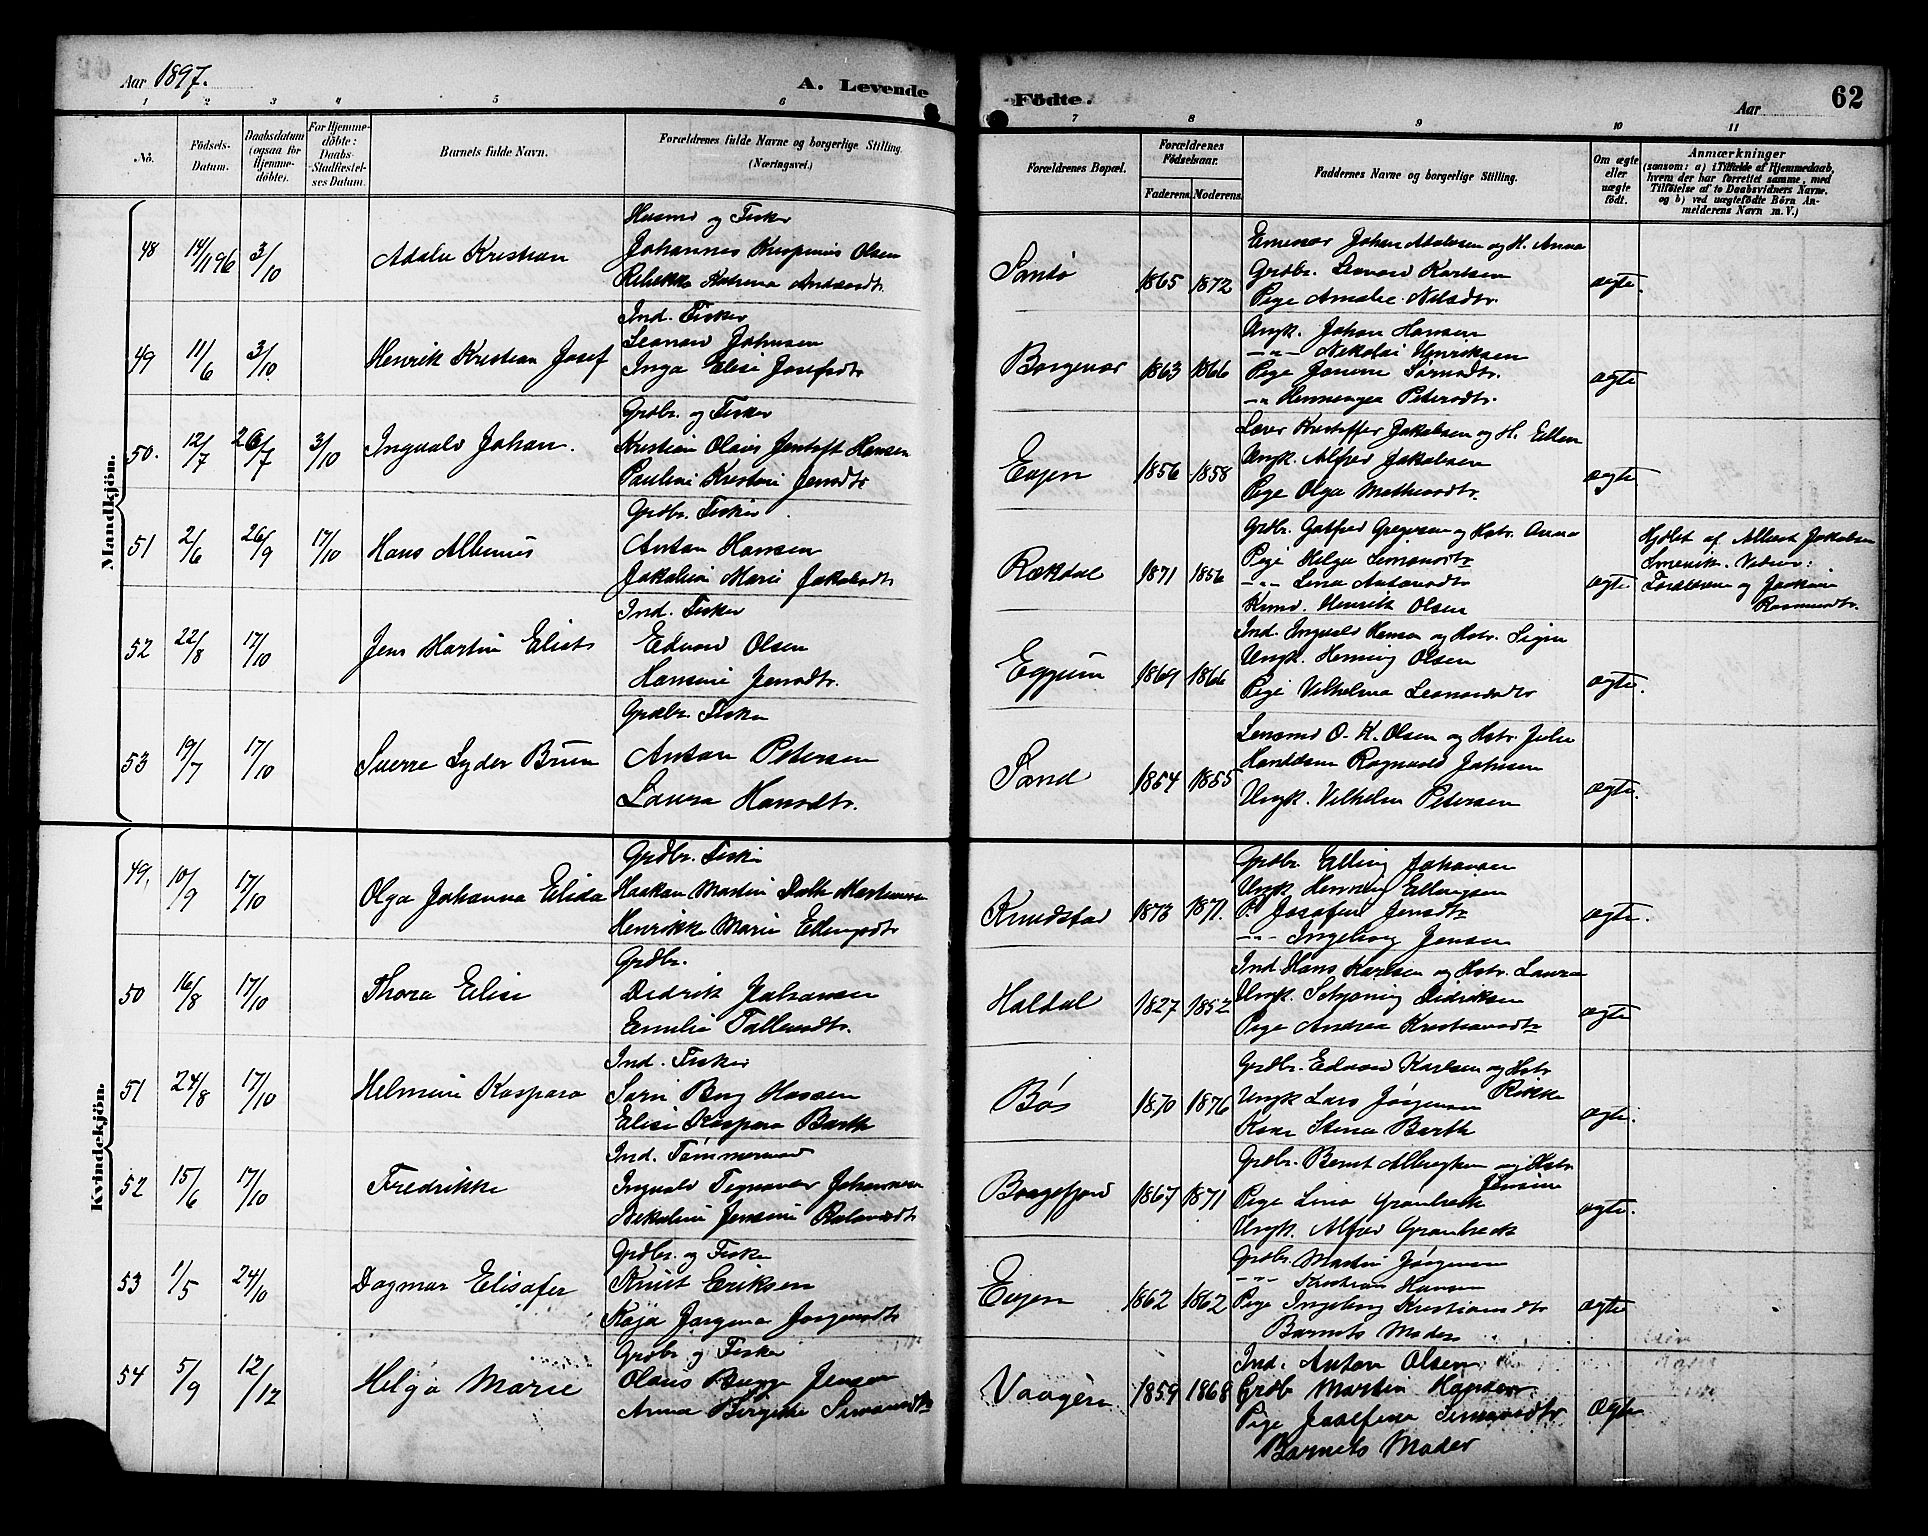 Aar 1897.
A. Levende
Fødte.
Aar
62
1 2 3 4 5 6 7 8 9 10 11
No.
Fødsels-Datum.
Daabsdatum (ogsaa for Hjemmedøbte).
For Hjemmedøbte: Daabs-Stadfæstelses Datum.
Barnets fulde Navn.
Forældrenes fulde Navne og borgerlige Stilling. (Næringsvei.)
Forældrenes Bopæl.
Forældrenes Fødselsaar.
Faderens. Moderens.
Faddernes Navne og borgerlige Stilling.
Om ægte eller uægte født.
Anmærkninger
(saasom: a) i Tilfælde af Hjemmedaab, hvem der har forrettet samme, med Tilføielse af to Daabsvidners Navne, og b) ved uægtefødte Børn Anmelderens Navn m. V.)
Mandkjön.
48 14/11 96 3/10 Adolu Kristian
Husmd og Fisker
Johannes Olsen
Rebekka Katrina
Sandø 1865 1872
Johan Adolvsen og H. Anna
Grdbr. Leonard Karlsen
Pige Amalie Nilsdtr.
ægte.
49 11/6 3/10 Henrik Kristian Josef
Ind. Fisker
Leonard Johnsen
Inga Elise Josefsdtr
Borgevær 1863 1866
Ungk. Johan Hansen
—"— Nikolai Henriksen
Pige
—"— Petersdtr.
ægte
50. 12/7 26/7 3/10 Ingvald Johan.
Grdbr. og Fisker
Kristian Olaus Jentoft Hansen
Pauline Kristine Jensdtr
Eujen 1856 1858
Lærer Kristoffer Jakobsen og H. Ellen
Ungk. Alfred Jakobsen
Pige Olga
ægte
51 2/6 26/9 17/10 Hans Albinus
Grdbr. Fisker
Anton Hansen
Jakobine Marie Jakobsdtr
Rækdal 1871 1856
Grdbr. Gotfred Gregersen og Hstr. Anna
Pige Helga Simonsdtr
—"— Lina Antonsdtr
Henrik Olsen
ægte
Hjdbt af Albert Jakobsen
Vidner:
Forældrene og
Rasmusdtr.
52 22/8 17/10 Jens Martin Elias
Ind. Fisker
Edvard Olsen
Hansine Jensdtr.
Eggum 1869 1866
Ind. Ingvald Hansen og Hstr. Signe
Ungk. Henning Olsen
Pige Vilhelma Leonardsdtr
ægte.
53 19/7 17/10 Sverre Lyder Brun
Grdbr. Fisker
Anton Petersen
Laura Hansdtr.
Sand 1854 1855
Lensmd O. K. Olsen og Hstr. Julie
Handelsm Ragnvald Johnsen
Ungk. Vilhelm Petersen
ægte.
Kvindekjön.
49. 10/9 17/10 Olga Johanna Elida
Grdbr. Fisker
Haakon Martin Martinusen
Henrikke Marie Ellingsdtr
Knudstad 1873 1871.
Grdbr. Elling Johansen
Ungk Henning Ellingsen
P. Josefine Jensdtr
—"— Ingeborg Jensen
ægte.
50 16/8 17/10 Thora Elise
Grdbr.
Didrik Johansen
Emilie Tollevsdtr.
Haldal 1827 1852
Ind Hans Karlsen og Hstr. Laura
Ungk. Schjøning Didriksen
Pige Andrea Kristiansdtr
ægte
51 24/8 17/10 Helmine Kaspara
Ind. Fisker
Søren Berg Hansen
Elise Kaspara Barth
Bøs 1870 1876
Grdbr. Edvard Karlsen og Hstr
Rikke
Ungk Lars Jørgensen
Kone Stina Barth
ægte.
52 15/6 17/10 Fredrikke
Ind. Tømmermand
Ingvald Johannesen
Nikoline Jensine
Borgefjord 1867 1871
Grdbr. Bernt Albregtsen og Hstr
Jensine
Pige Lina Grønbech
Ungk. Alfred Grønbech
ægte.
53 1/5 24/10 Dagmar Elisafer
Grdbr. og Fisker
Knut Eriksen
Kaja Jørgine Jørgensdtr
Eujen 1862 1862
Grdbr. Martin Jørgensen
—"— Kristian Hansen
Pige Ingeborg Kristiansdtr
Barnets Moder
ægte
54 5/9 12/12 Helga Marie
Grdbr. og Fisker
Olaus Bugge Jensen
Anna Birgitte Simonsdtr
Vaagen 1859 1868
Ind. Anton Olsen
Grdb Martin Hansen
Pige Josefine Simonsdtr
Barnets Moder
Ægte